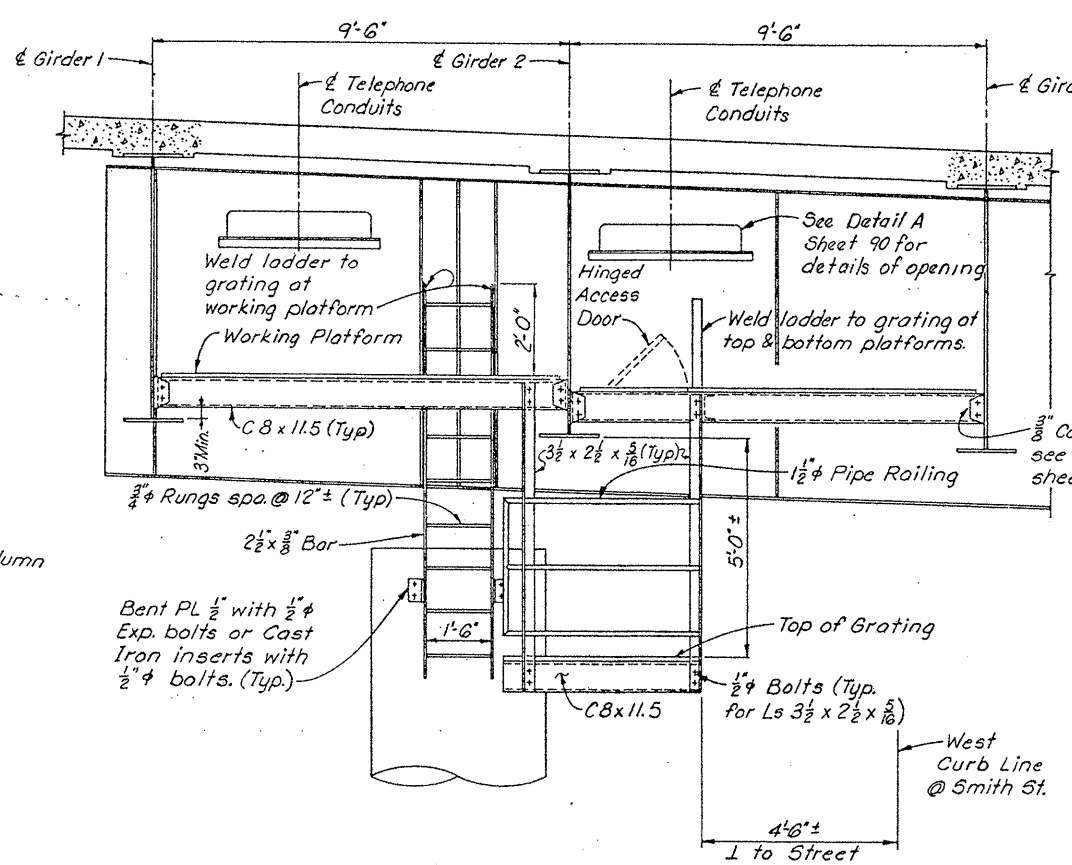 9'-6"
9'-6"
℄ Girder 1
℄ Girder 2
℄ Gird
℄ Telephone
Conduits
℄ Telephone
Conduits
See Detail A
Sheet 90 for
details of opening
Weld ladder to
grating at
working platform
Hinged
Access
Door
Working Platform
2'-0"
Weld ladder to grating at
top & bottom platforms.
C 8 x 11.5 (Typ)
3" Min.
3½ x 2½ x 5/16 (Typ)
3/8" Co
see
shee
1½"ϕ Pipe Railing
¾"ϕ Rungs spa. @ 12"± (Typ)
2½" x 3/8" Bar
5'-0" ±
umn
Bent PL ½" with ½"ϕ
Exp. bolts or Cast
Iron inserts with
½"ϕ bolts. (Typ.)
1'-6"
Top of Grating
C8x11.5
½"ϕ Bolts (Typ.
for Ls 3½ x 2½ x 5/16)
West
Curb Line
@ Smith St.
4'-6" ±
⊥ to Street